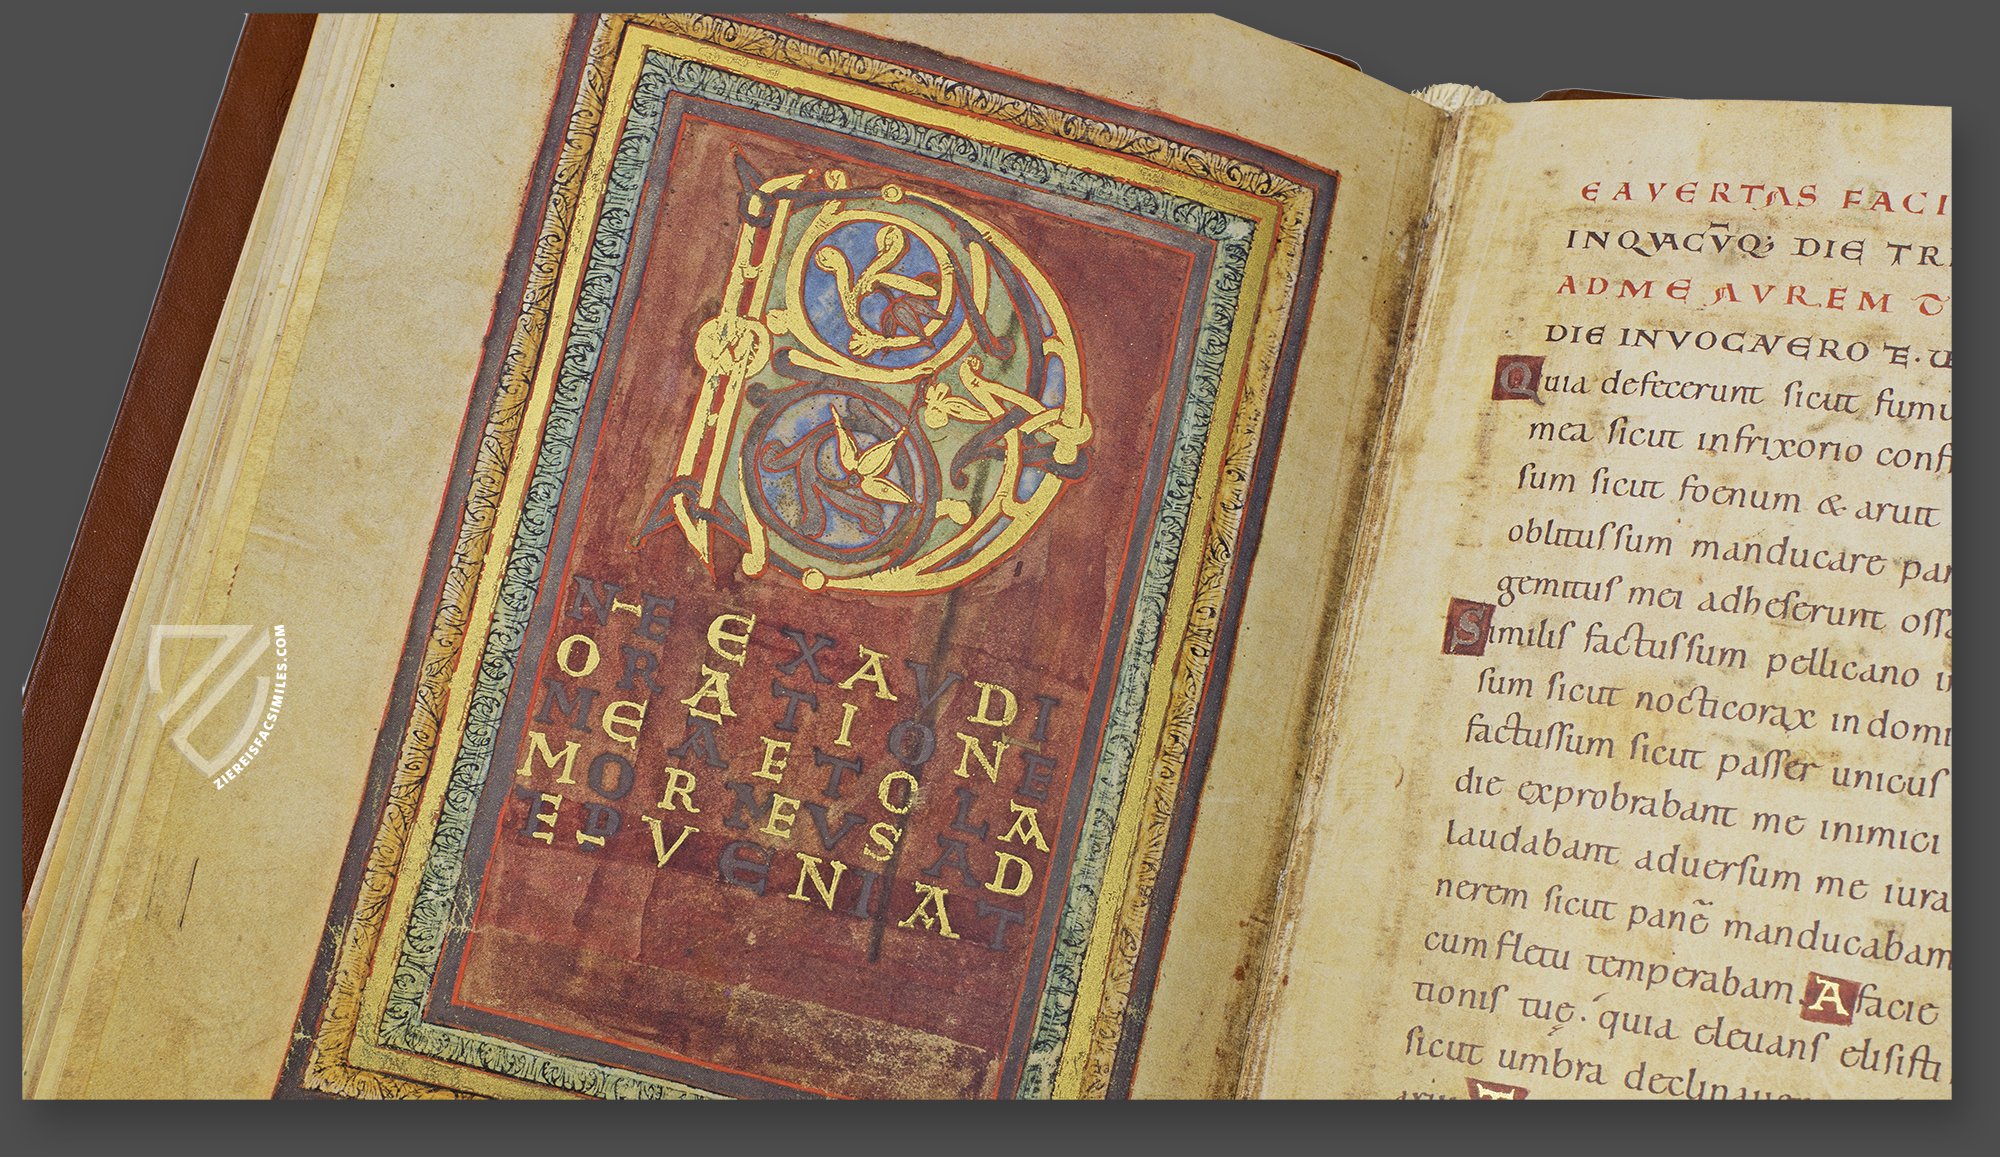 D
NE EXAVDI
ORATIONE
MEA ET CLA
MOR MEVS AD
TE VENIAT
E AVERTAS FACI
INQVACV̄Q; DIE TRI
ADME AVREM T
DIE INVOCAVERO TE. U
Quia defecerunt sicut fumu
mea sicut infrixorio conf
sum sicut foenum & aruit
oblitussum manducare pan
gemitus mei adheserunt ossa
Similis factussum pellicano in
sum sicut nocticorax in domi
factussum sicut passer unicus
die exprobrabant me inimici
laudabant aduersum me iura
nerem sicut panē manducabam
cum fletu temperabam. A facie
tionis tuę. quia eleuans elisisti
sicut umbra declinaue
ZIEREISFACSIMILES.COM